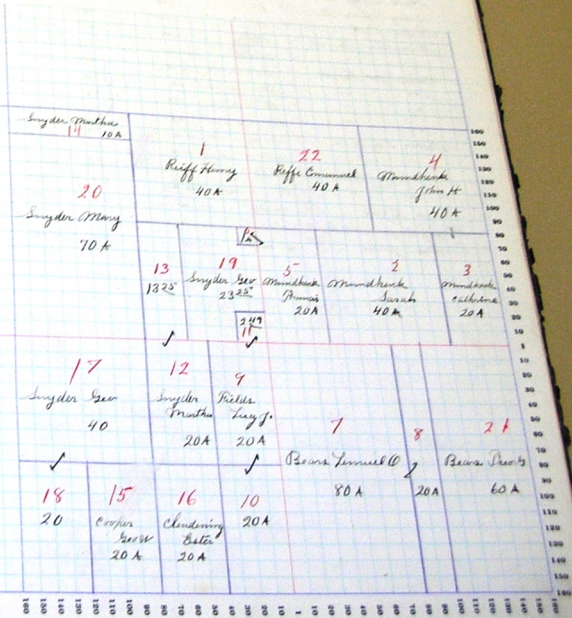 Snyder Martha
14 10 A
20
Snyder Mary
70 A
1
Reiff Henry
40 A
22
Reiffe Emanuel
40 A
4
John H
40 A
13
13 25
19
Snyder Geo
23 25
5
Francis
20 A
2
Sarah
40 A
3
Catherine
20 A
2.49
11
17
Snyder Geo
40
12
Snyder
Martha
20 A
9
Fields
Lucy J.
20 A
7
Bears Lemuel O
80 A
8
20 A
21
Bears
60 A
18
20
15
Cooper
Geo W
20 A
16
Clendening
Ester
20 A
10
20 A
160
150
140
130
120
110
100
90
80
70
60
50
40
30
20
10
1
10
20
30
40
50
60
70
80
90
100
110
120
130
140
150
160
160 150 140 130 120 110 100 90 80 70 60 50 40 30 20 10 1 10 20 30 40 50 60 70 80 90 100 110 120 130 140 150